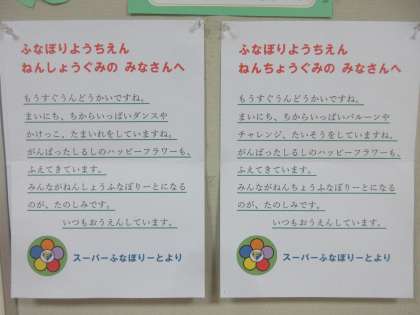 ふなぼりようちえん
ねんしょうぐみの みなさんへ
もうすぐうんどうかいですね。
まいにち、ちからいっぱいダンスや
かけっこ、たまいれをしていますね。
がんばったしるしのハッピーフラワーも、
ふえてきています。
みんながねんしょうふなぼりーとになる
のが、たのしみです。
いつもおうえんしています。
スーパーふなぼりーとより
ふなぼりようちえん
ねんちょうぐみの みなさんへ
もうすぐうんどうかいですね。
まいにち、ちからいっぱいバルーンや
チャレンジ、たいそうをしていますね。
がんばったしるしのハッピーフラワーも、
ふえてきています。
みんながねんちょうふなぼりーとになる
のが、たのしみです。
いつもおうえんしています。
スーパーふなぼりーとより